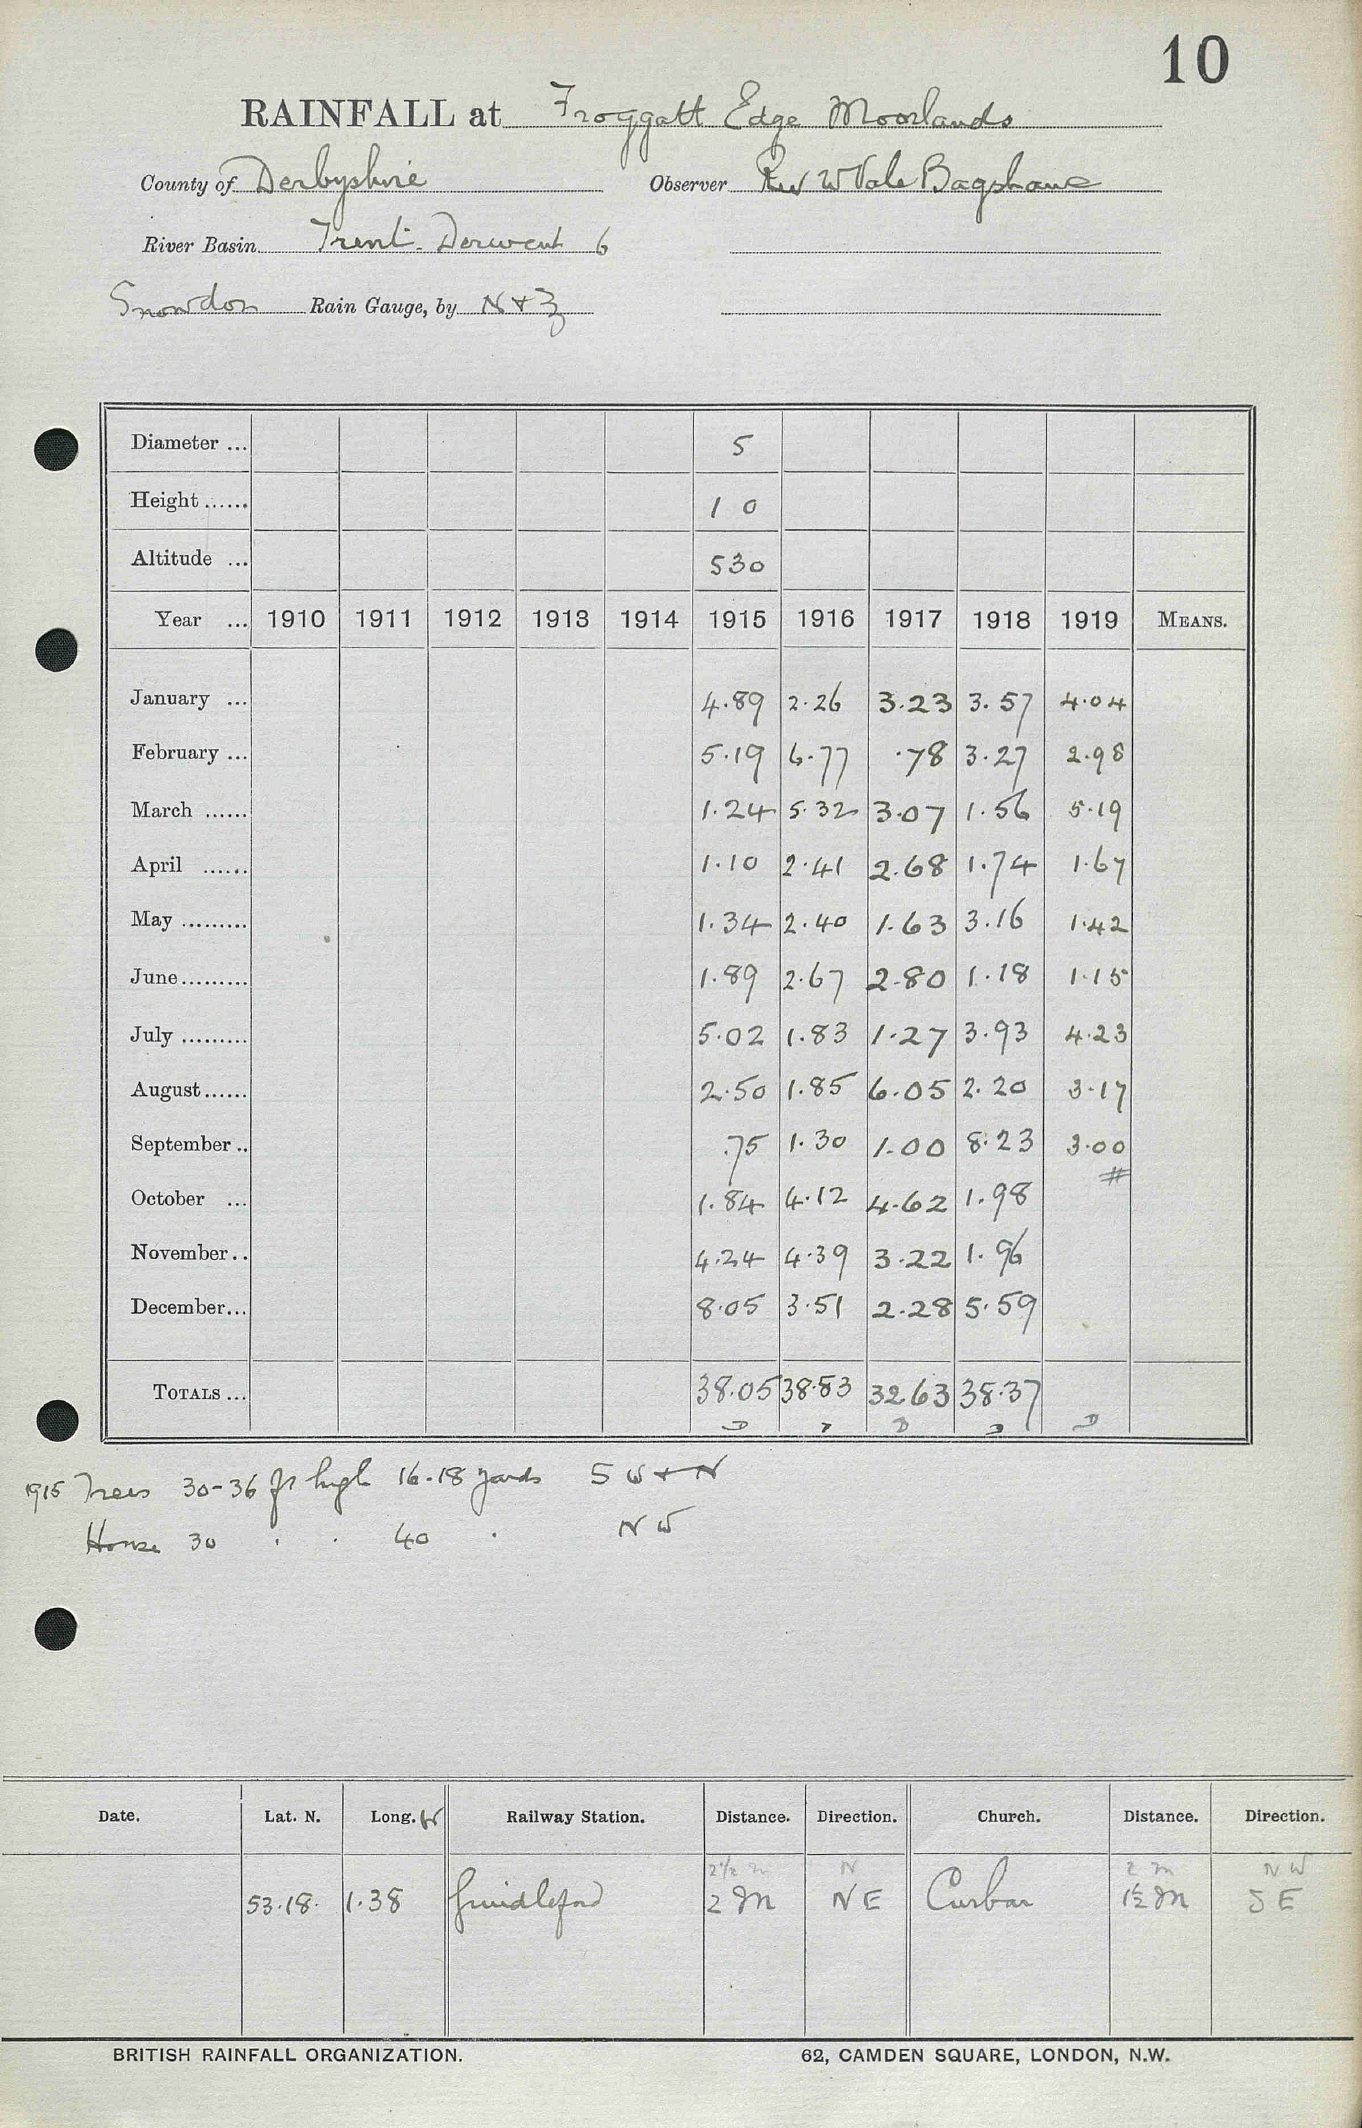 10
RAINFALL at Froggatt Edge Moorlands
County of Derbyshire Observer Rev W Vale Bagshawe
River Basin Trent. Derwent 6
Snowdon Rain Gauge, by N + Z
Diameter ... 5
Height ...... 1 0
Altitude ... 530
Year ... 1910 1911 1912 1913 1914 1915 1916 1917 1918 1919 MEANS.
January ... 4.89 2.26 3.23 3.57 4.04
February ... 5.19 6.77 .78 3.27 2.98
March ...... 1.24 5.32 3.07 1.56 5.19
April ...... 1.10 2.41 2.68 1.74 1.67
May ......... 1.34 2.40 1.63 3.16 1.42
June ......... 1.89 2.67 2.80 1.18 1.15
July ......... 5.02 1.83 1.27 3.93 4.23
August ...... 2.50 1.85 6.05 2.20 3.17
September .. .75 1.30 1.00 8.23 3.00
#
October ... 1.84 4.12 4.62 1.98
November .. 4.24 4.39 3.22 1.96
December ... 8.05 3.51 2.28 5.59
TOTALS ... 38.05 38.83 32.63 38.37
D D D D D
1915 Trees 30-36 ft high 16-18 yards S W + N
House 30 . . 40 . N W
Date. Lat. N. Long. W Railway Station. Distance. Direction. Church. Distance. Direction.
2 1/2 m N 2 m N W
53.18. 1.38 Grindleford 2 M N E Curbar 1½ M S E
BRITISH RAINFALL ORGANIZATION. 62, CAMDEN SQUARE, LONDON, N.W.